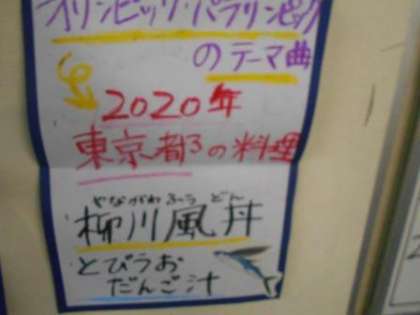 オリンピック・パラリンピック
のテーマ曲
2020年
東京都の料理
やながわふうどん
柳川風丼
とびうお
だんご汁